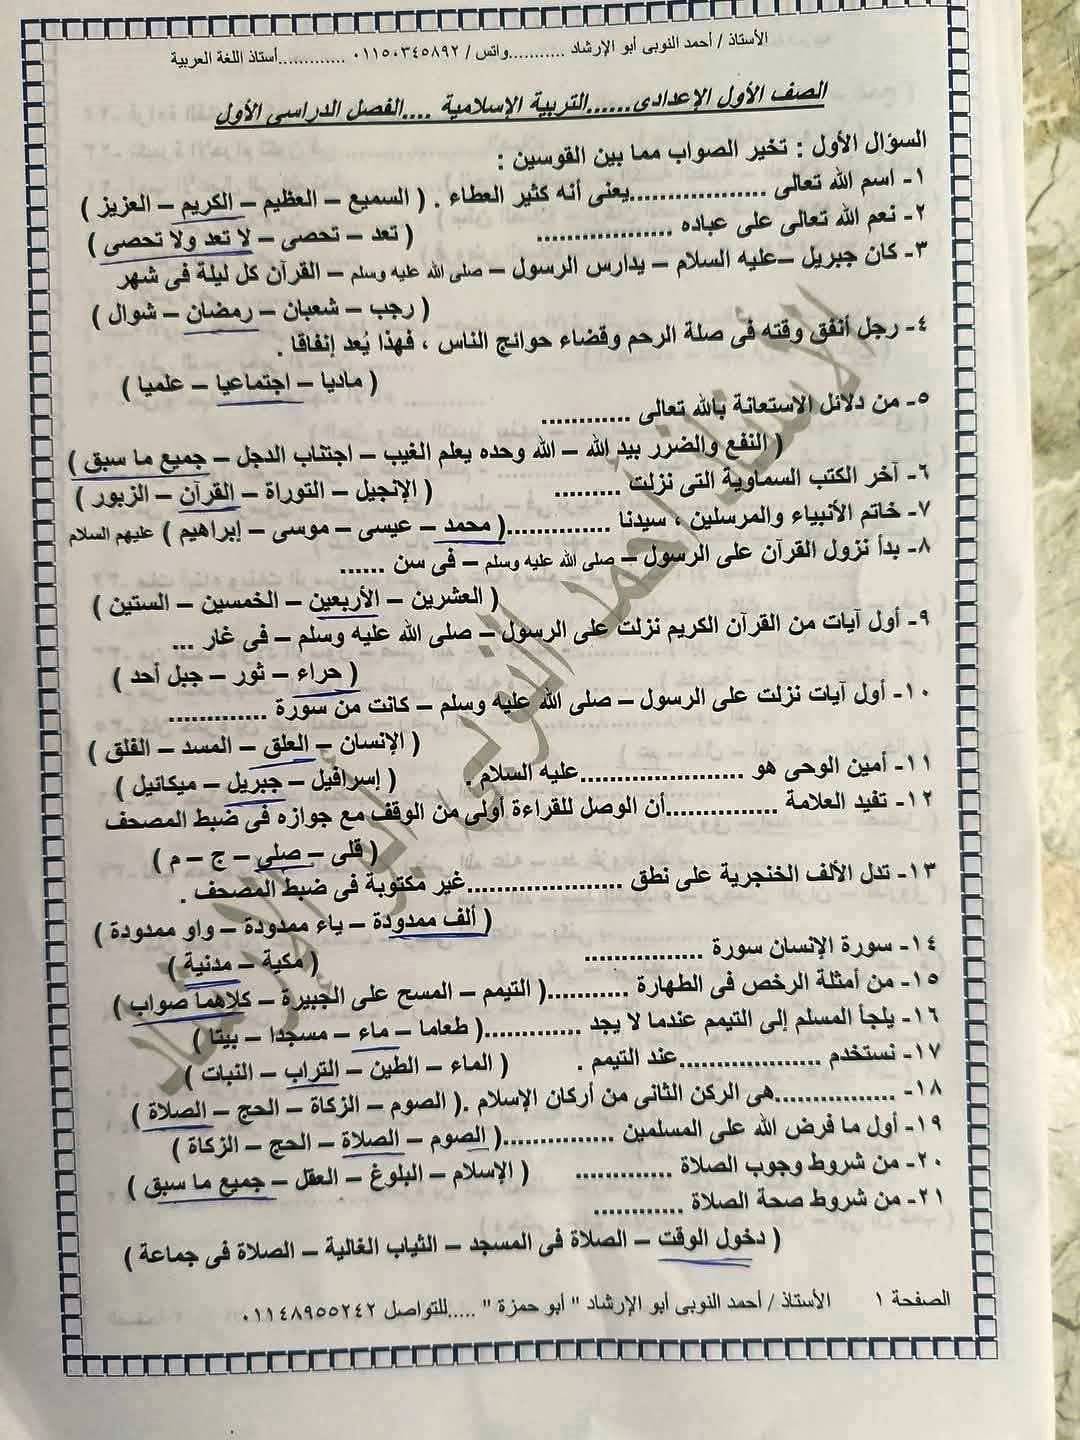 الأستاذ / أحمد النوبى أبو الإرشاد ...........واتس / ٠١١٥٠٣٤٥٨٩٢ ............أستاذ اللغة العربية
الصف الأول الإعدادى......التربية الإسلامية ....الفصل الدراسى الأول
السؤال الأول : تخير الصواب مما بين القوسين :
١- اسم الله تعالى .................يعنى أنه كثير العطاء . ( السميع – العظيم – الكريم – العزيز )
٢- نعم الله تعالى على عباده ................. ( تعد – تحصى – لا تعد ولا تحصى )
٣- كان جبريل –عليه السلام – يدارس الرسول – صلى الله عليه وسلم – القرآن كل ليلة فى شهر
( رجب – شعبان – رمضان – شوال )
٤- رجل أنفق وقته فى صلة الرحم وقضاء حوائج الناس ، فهذا يُعد إنفاقا .
( ماديا – اجتماعيا – علميا )
٥- من دلائل الاستعانة بالله تعالى ...........
( النفع والضرر بيد الله – الله وحده يعلم الغيب – اجتناب الدجل – جميع ما سبق )
٦- آخر الكتب السماوية التى نزلت ......... ( الإنجيل – التوراة – القرآن – الزبور )
٧- خاتم الأنبياء والمرسلين ، سيدنا .............( محمد – عيسى – موسى – إبراهيم ) عليهم السلام
٨- بدأ نزول القرآن على الرسول – صلى الله عليه وسلم – فى سن ......
( العشرين – الأربعين – الخمسين – الستين )
٩- أول آيات من القرآن الكريم نزلت على الرسول – صلى الله عليه وسلم – فى غار ...
( حراء – ثور – جبل أحد )
١٠- أول آيات نزلت على الرسول – صلى الله عليه وسلم – كانت من سورة .............
( الإنسان – العلق – المسد – الفلق )
١١- أمين الوحى هو ......................عليه السلام . ( إسرافيل – جبريل – ميكائيل )
١٢- تفيد العلامة ...............أن الوصل للقراءة أولى من الوقف مع جوازه فى ضبط المصحف
( قلى – صلى – ج – م )
١٣- تدل الألف الخنجرية على نطق .....................غير مكتوبة فى ضبط المصحف .
( ألف ممدودة – ياء ممدودة – واو ممدودة )
١٤- سورة الإنسان سورة ................ ( مكية – مدنية )
١٥- من أمثلة الرخص فى الطهارة ...........( التيمم – المسح على الجبيرة – كلاهما صواب )
١٦- يلجأ المسلم إلى التيمم عندما لا يجد .............( طعاما – ماء – مسجدا – بيتا )
١٧- نستخدم ...................عند التيمم . ( الماء – الطين – التراب – النبات )
١٨- ................هى الركن الثانى من أركان الإسلام .( الصوم – الزكاة – الحج – الصلاة )
١٩- أول ما فرض الله على المسلمين ...............( الصوم – الصلاة – الحج – الزكاة )
٢٠- من شروط وجوب الصلاة ............. ( الإسلام – البلوغ – العقل – جميع ما سبق )
٢١- من شروط صحة الصلاة ............
( دخول الوقت – الصلاة فى المسجد – الثياب الغالية – الصلاة فى جماعة )
الصفحة ١ الأستاذ / أحمد النوبى أبو الإرشاد " أبو حمزة " .....للتواصل ٠١١٤٨٩٥٥٢٤٢
الأستاذ أحمد النوبى أبو الإرشاد